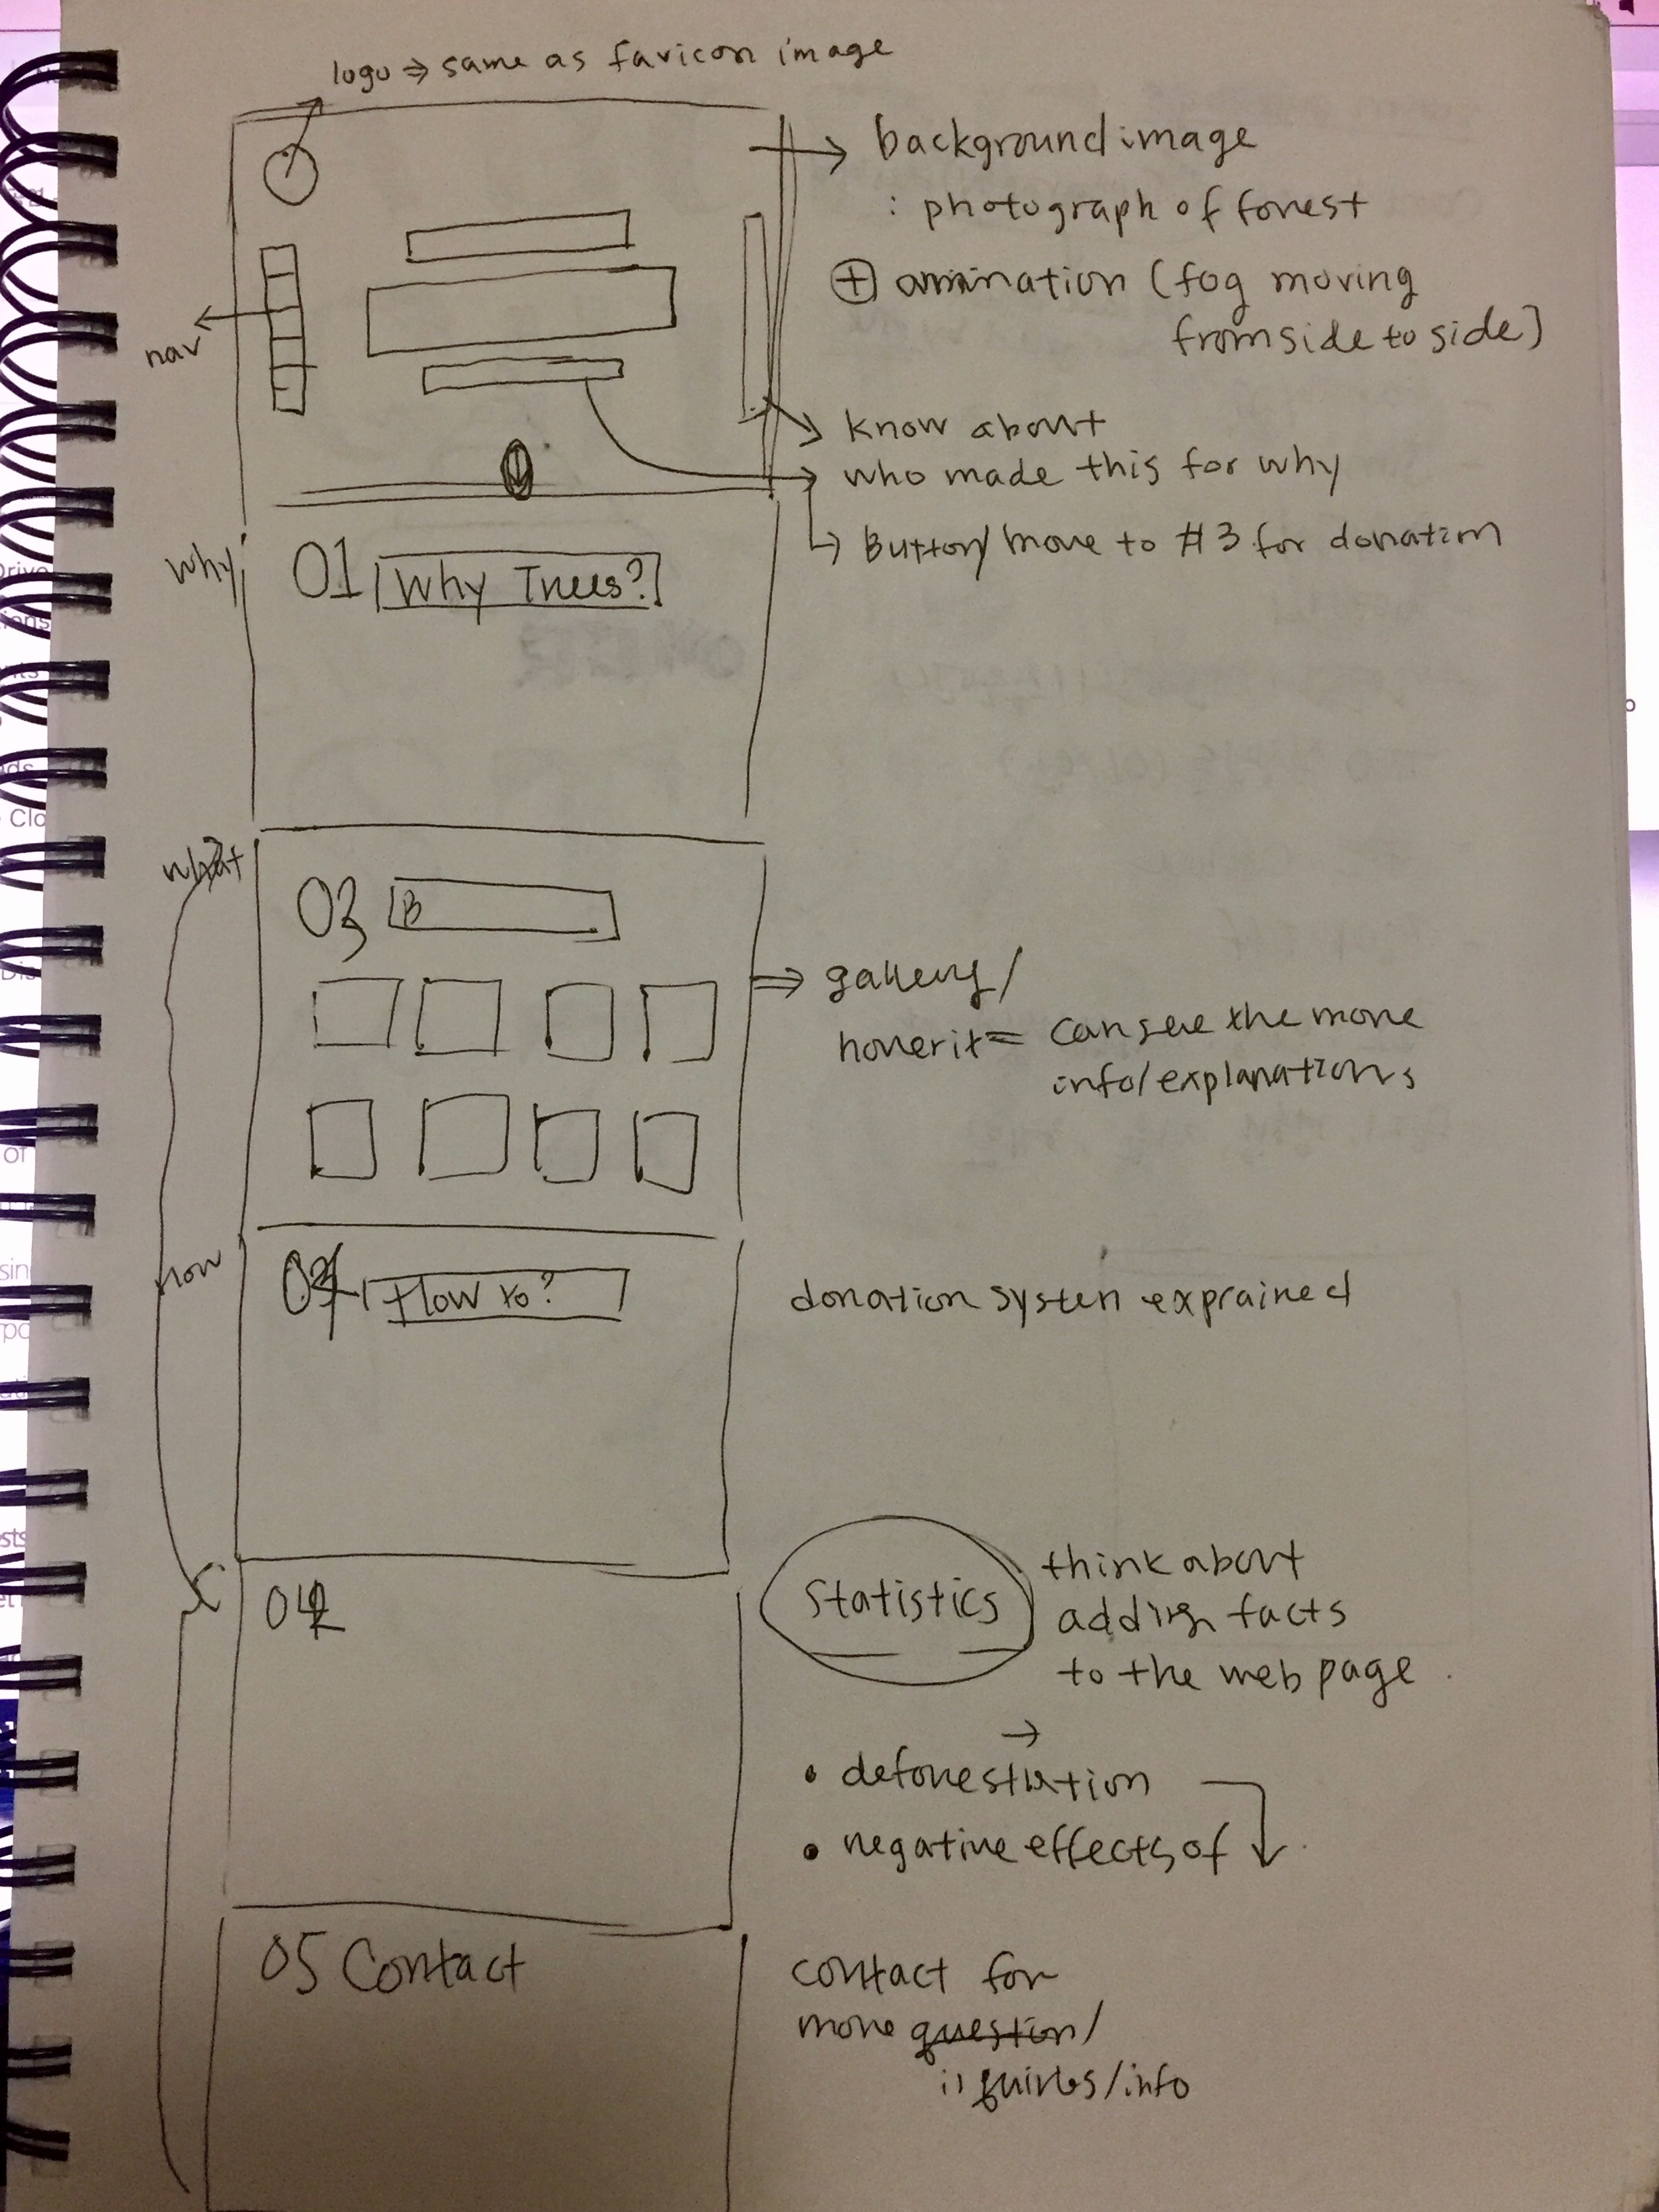 logo ⇒ same as favicon image
→ background image
: photograph of forest
⊕ animination (fog moving
from side to side)
nav
know about
who made this for why
Button/ move to #3 for donation
why
01 Why Trees?
what
03 B
⇒ gallery/
hover it = can see the more
info/explanations
how
How to?
donation system exprained
04
Statistics
think about
adding facts
to the web page.
→
• deforestration
• negative effects of
05 Contact
contact for
more question/
inquiries/info
Clo
of